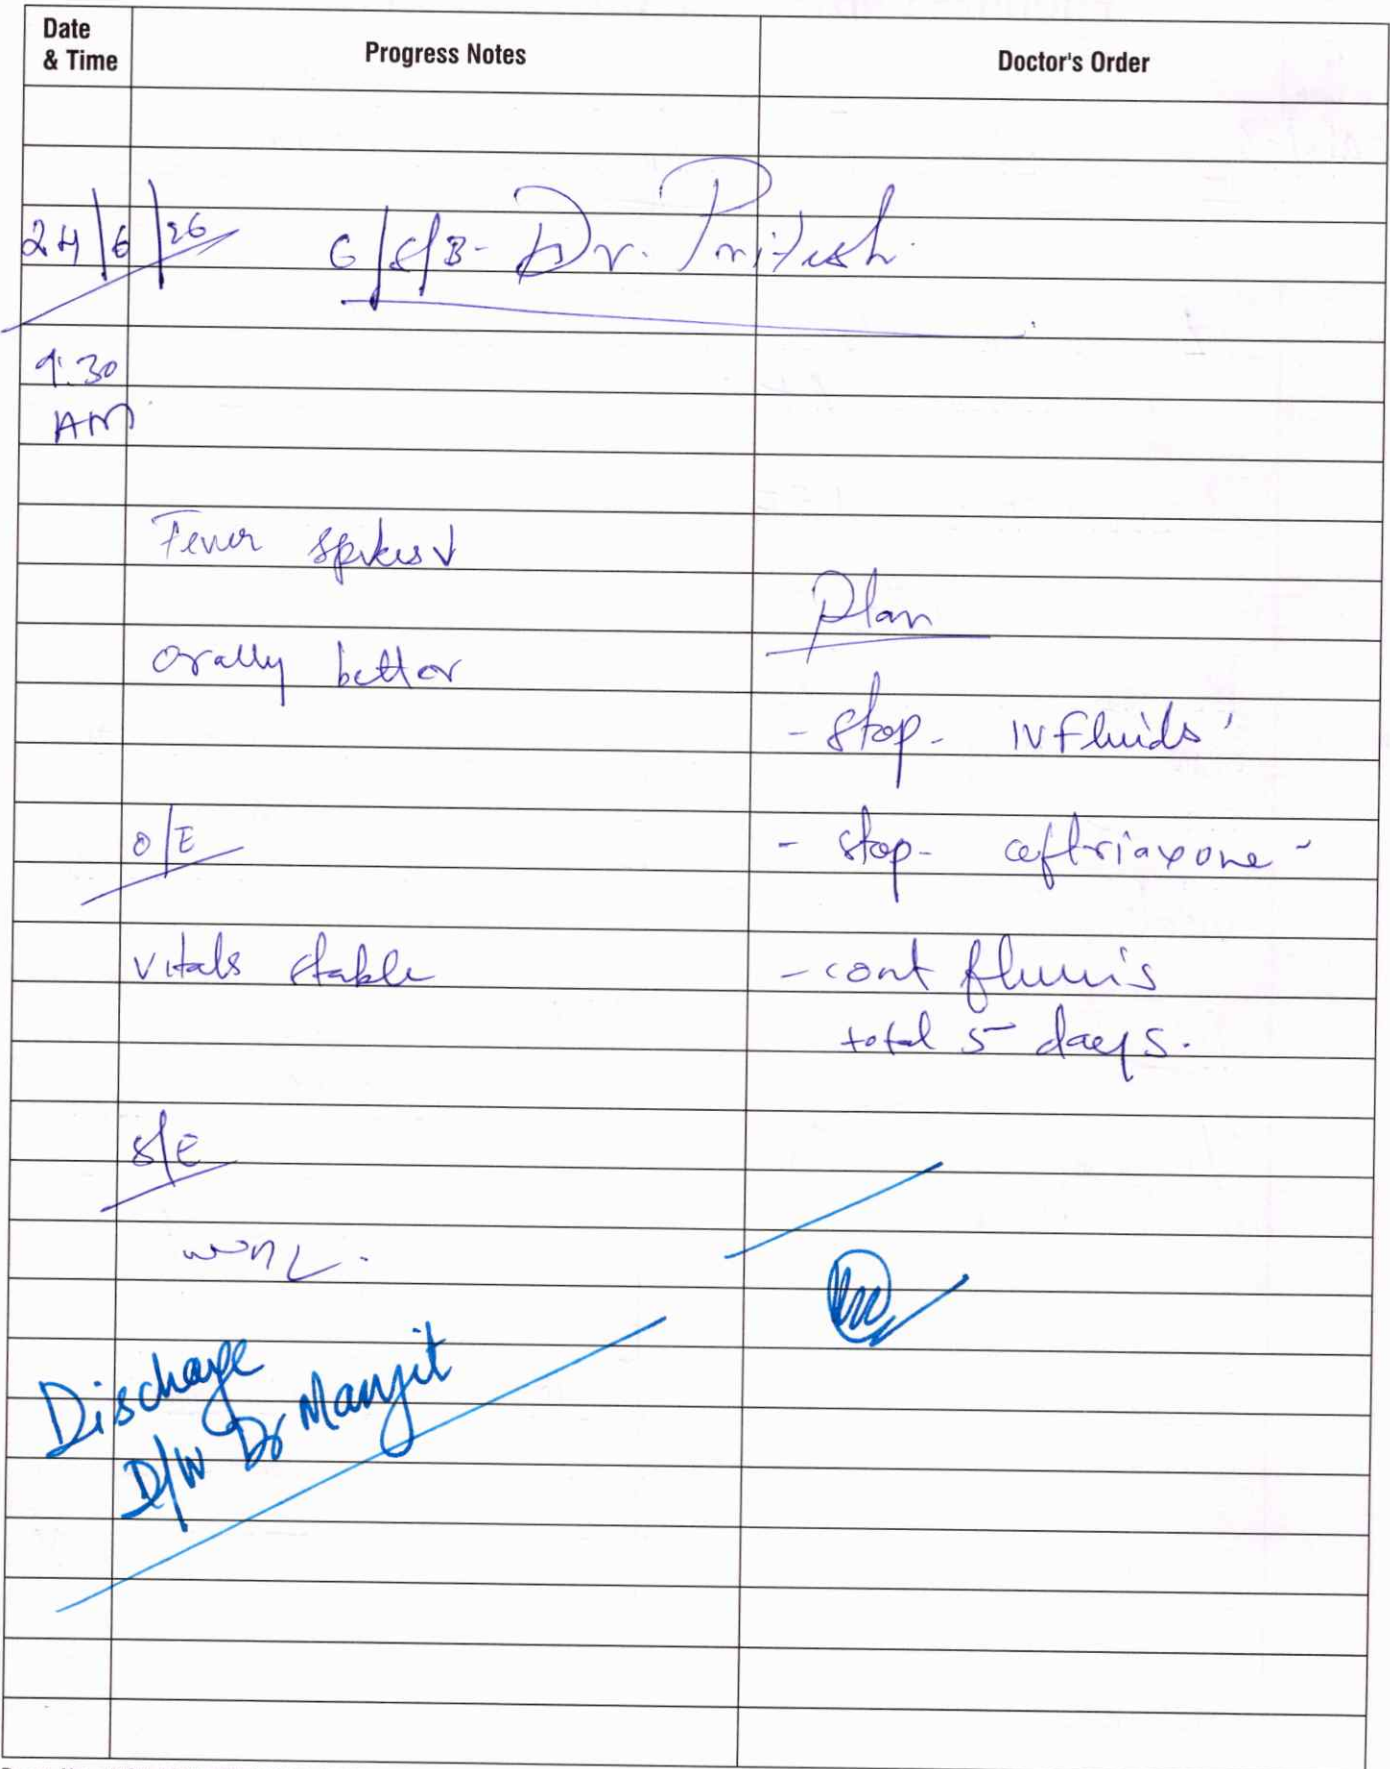 Date & Time
Progress Notes
Doctor's Order
24/6/26
C/S/B- Dr. Pritesh
9.30
AM
Fever spikes ↓
Plan
Orally better
- Stop- IV Fluids
O/E
- Stop- ceftriaxone -
Vitals stable
- cont fluvis
total 5 days.
S/E
WNL.
Discharge
D/W Dr Manjit